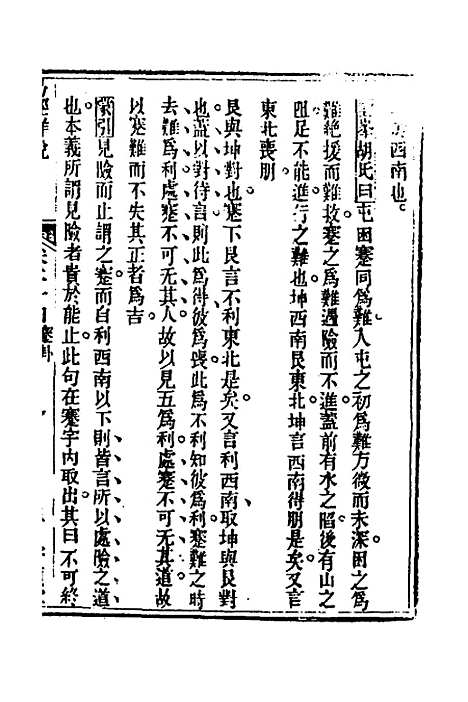 西南也
胡氏曰屯困蹇同爲難人屯之初爲難方微而未深困之爲
難絶援而難拔蹇之爲難遇險而不進蓋前有水之陷後有山之
阻足不能進行之難也坤西南艮東北坤言西南得朋是矣又言
東北喪朋
艮與坤對也蹇下艮言不利東北是矣又言利西南取坤與艮對
也蓋以對待言則此爲得彼爲喪此爲不利知彼爲利蹇難之時
去難爲利處蹇不可无其人故以見五爲利處蹇不可无其道故
以蹇難而不失其正者爲吉
蒙引見險而止謂之蹇而自利西南以下則皆言所以處險之道
也本義所謂見險者貴於能止此句在蹇字内取出其曰不可終
易經詳說
蹇卦